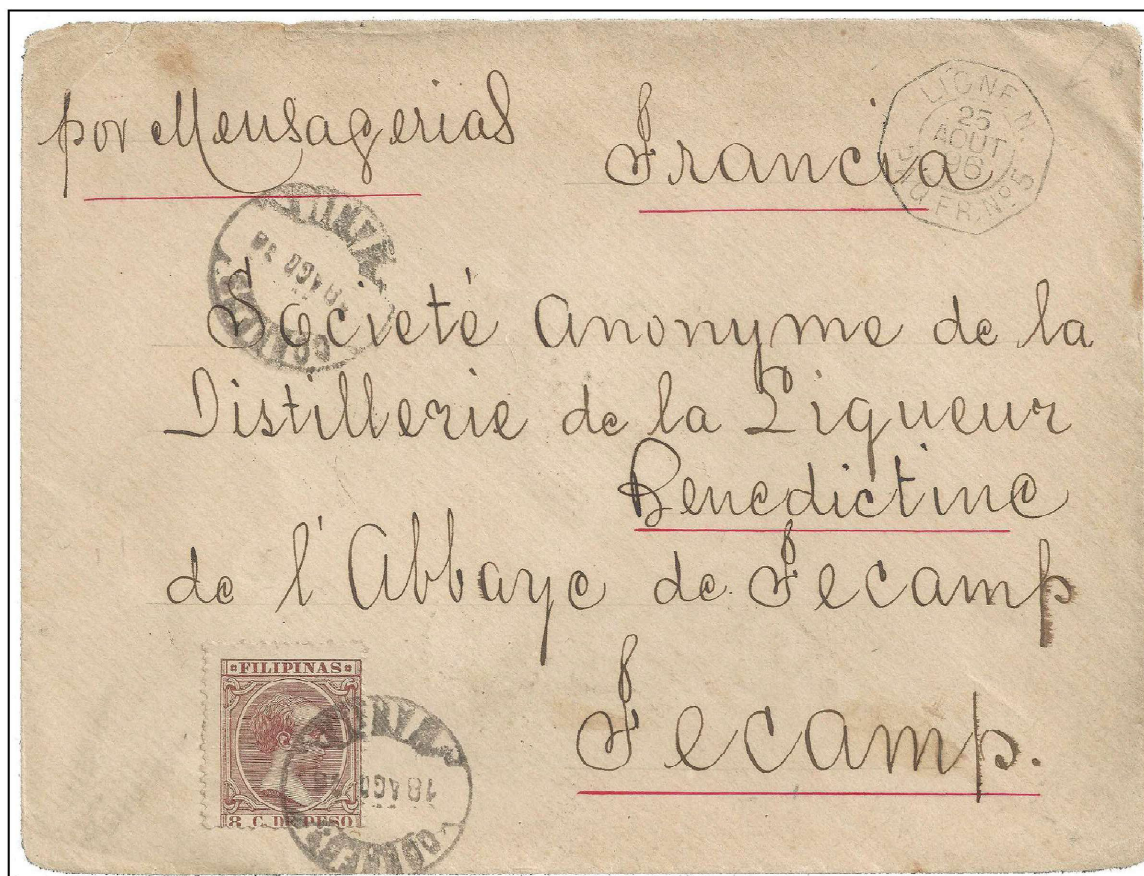 por Mensagerias
Francia
LIGNE N.
25
AOUT
96
PAQ. FR. Nº 5
MANILA
18 AGO
CORREOS
Societé Anonyme de la
Distillerie de la Liqueur
Benedictine
de l'Abbaye de Fecamp
Fecamp.
FILIPINAS
8 C. DE PESO
MANILA
18 AGO
CORREOS